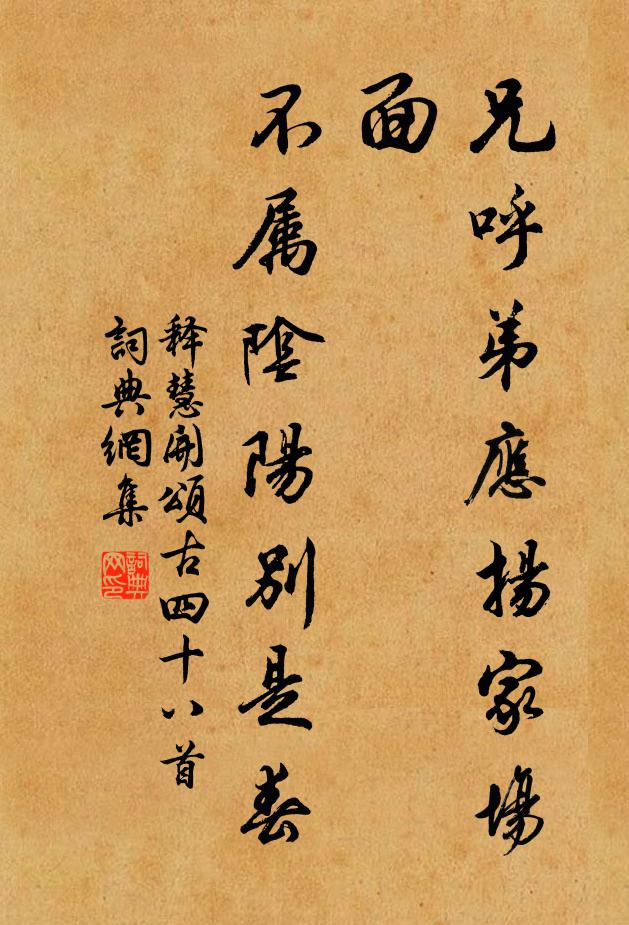 兄呼弟應揚家場
面
不属陰陽別是春
释慧開頌古四十八首
詞典網集
詞典网印